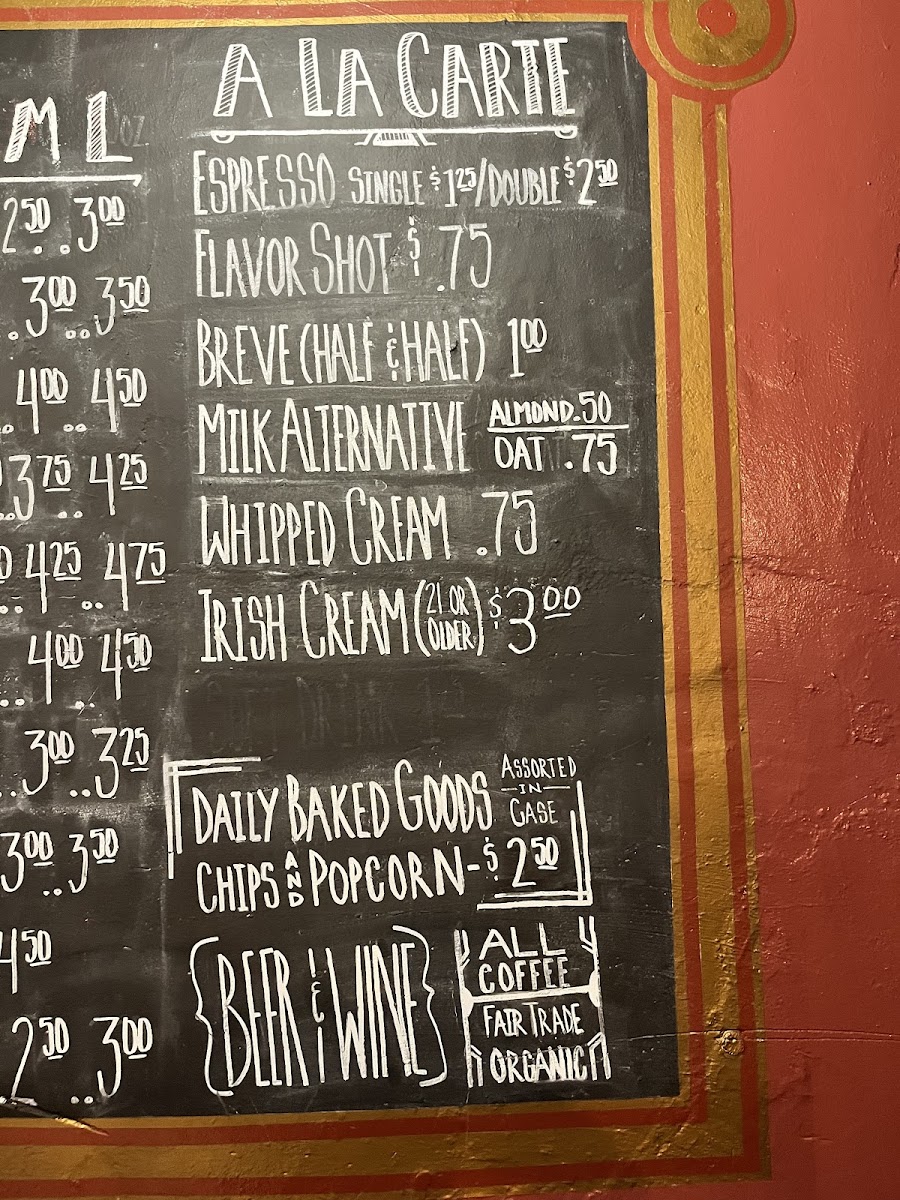 A LA CARTE
ESPRESSO SINGLE $1.25/DOUBLE $2.50
FLAVOR SHOT $ .75
BREVE (HALF & HALF) 1.00
MILK ALTERNATIVE ALMOND .50
OAT .75
WHIPPED CREAM .75
IRISH CREAM (21 OR OLDER) $3.00
DAILY BAKED GOODS ASSORTED IN CASE
CHIPS AND POPCORN - $2.50
{BEER & WINE}
ALL
COFFEE
FAIR TRADE
ORGANIC
M L OZ
2.50..3.00
..3.00..3.50
..4.00..4.50
3.75..4.25
..4.25..4.75
..4.00..4.50
..3.00..3.25
3.00..3.50
4.50
2.50..3.00